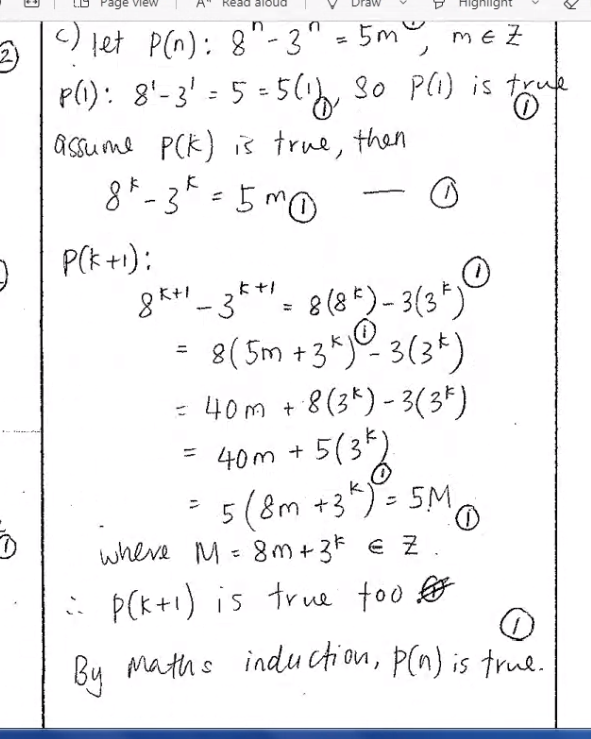 Page view A Read aloud Draw Highlight
②
c) let P(n): 8ⁿ - 3ⁿ = 5m ①, m ∈ ℤ
P(1): 8¹ - 3¹ = 5 = 5(1) ①, So P(1) is true ①
assume P(k) is true, then
8ᵏ - 3ᵏ = 5m ① — ①
P(k+1):
8ᵏ⁺¹ - 3ᵏ⁺¹ = 8(8ᵏ) - 3(3ᵏ) ①
= 8(5m + 3ᵏ) ① - 3(3ᵏ)
= 40m + 8(3ᵏ) - 3(3ᵏ)
= 40m + 5(3ᵏ)
= 5(8m + 3ᵏ) ① = 5M ①
①
where M = 8m + 3ᵏ ∈ ℤ.
∴ P(k+1) is true too
①
By Maths induction, P(n) is true.